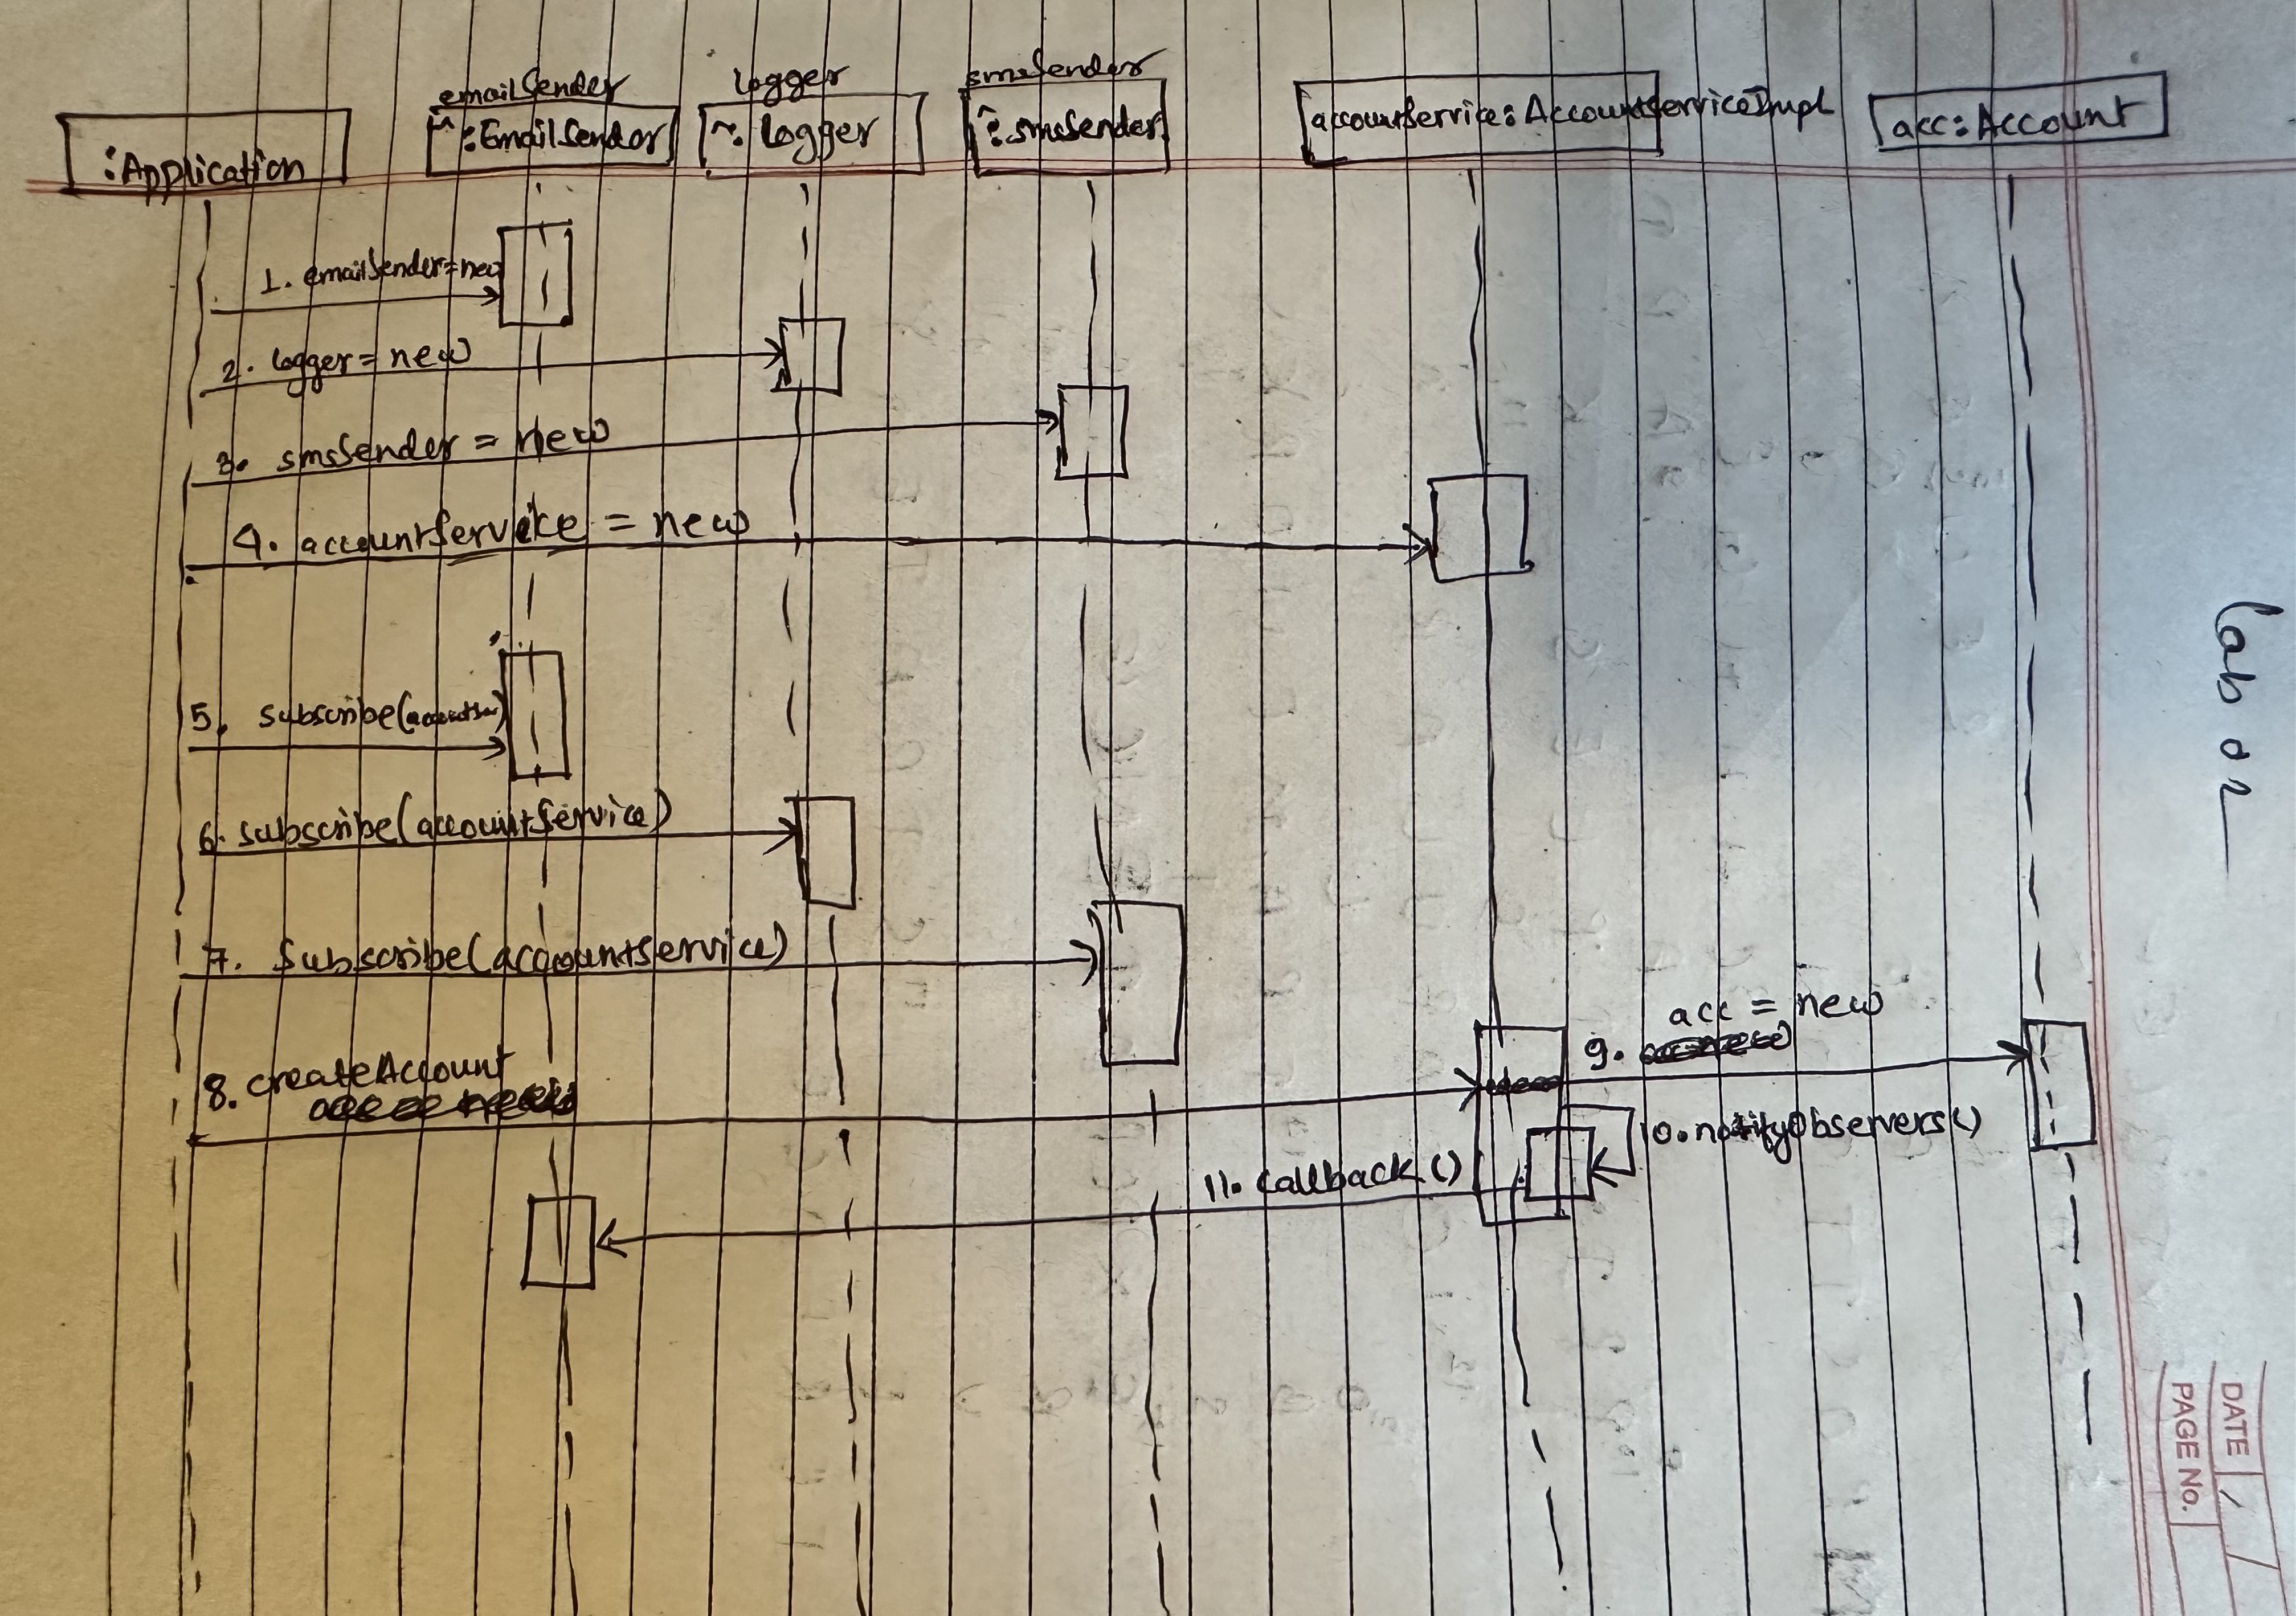 emailSender
logger
smsSender
:Application
:EmailSender
: logger
:smsSender
accountService:AccountServiceImpl
acc:Account
1. emailSender=new
2. logger = new
3. smsSender = new
4. accountService = new
5. subscribe(
6. subscribe(accountService)
7. Subscribe(accountService)
8. createAccount
acc = new
9.
10. notifyObservers()
11. callback()
Lab 02
DATE
PAGE No.